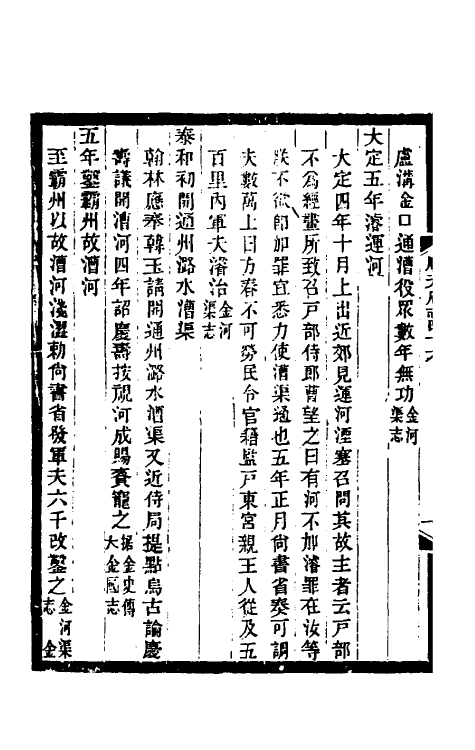 盧溝金口通漕役眾數年無功金河渠志
大定五年濬運河
大定四年十月上出近郊見運河湮塞召問其故主者云戸部
不爲經畫所致召戸部侍郎曹望之曰有河不加濬罪在汝等
朕不欲卽加罪宜悉力使漕渠通也五年正月尙書省奏可調
夫數萬上曰方春不可勞民令官籍監戸東宮親王人從及五
百里內軍夫濬治金河渠志
泰和初開通州潞水漕渠
翰林應奉韓玉請開通州潞水漕渠又近侍局提點烏古論慶
壽議開漕河四年詔慶壽按視河成賜賚寵之據金史傳大金國志
五年鑿霸州故漕河
至霸州以故漕河淺澀勅尙書省發軍夫六千改鑿之金河渠志 金